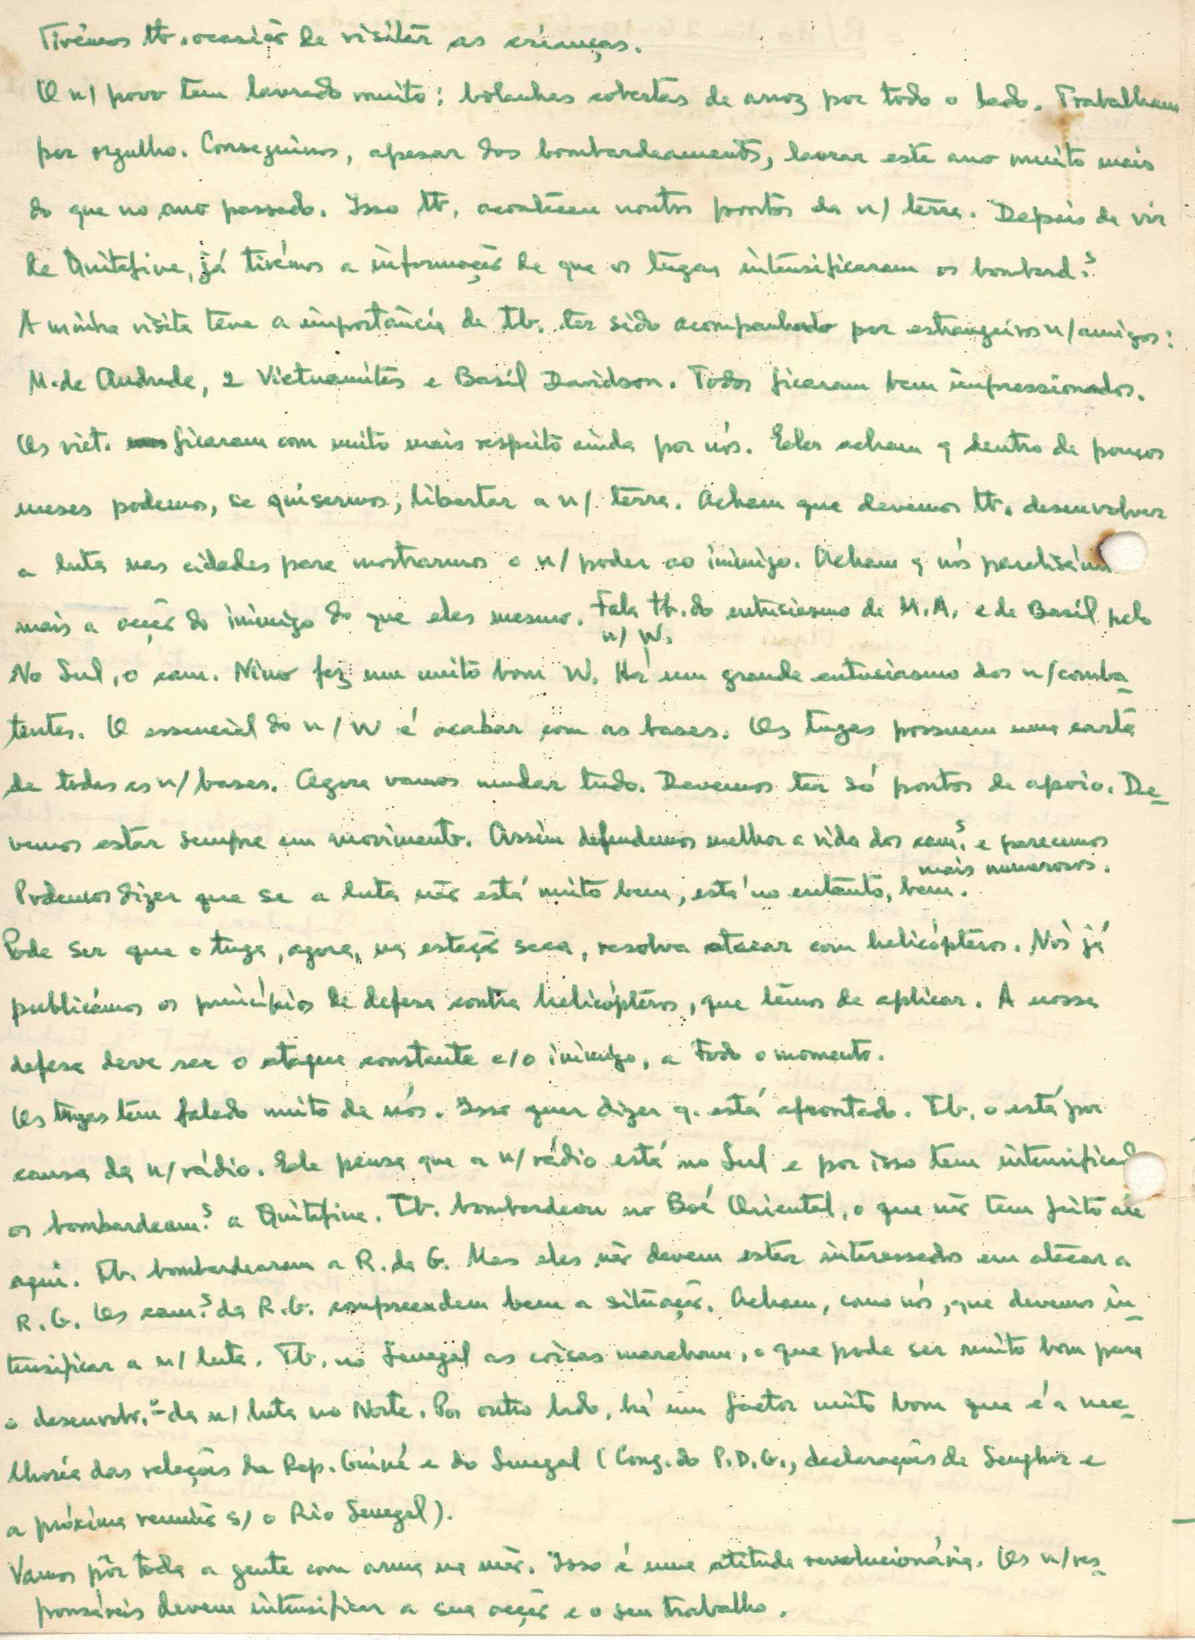 Tivémos tb. ocasião de visitar as crianças.
O n/ povo tem lavrado muito: bolanhas cobertas de arroz por todo o lado. Trabalham
por orgulho. Conseguimos, apesar dos bombardeamentos, lavrar este ano muito mais
do que no ano passado. Isso tb. aconteceu noutros pontos da n/ terra. Depois de vir
de Quitafine, já tivémos a informação de que os tugas intensificaram os bombard.s
A minha visita teve a importância de tb. ter sido acompanhado por estrangeiros n/amigos:
M. de Andrade, 2 Vietnamitas e Basil Davidson. Todos ficaram bem impressionados.
Os viet. ficaram com muito mais respeito ainda por nós. Eles acham q dentro de poucos
meses podemos, se quisermos, libertar a n/ terra. Acham que devemos tb. desenvolver
a luta nas cidades para mostrarmos o n/ poder ao inimigo. Acham q nós
mais a acção do inimigo do que eles mesmo. Fala tb. do entusiasmo de M.A. e de Basil pelo
n/ W.
No Sul, o cam. Nino fez um muito bom W. Há um grande entusiasmo dos n/comba-
tentes. O essencial do n/ W é acabar com as bases. Os tugas possuem uma carta
de todas as n/ bases. Agora vamos mudar tudo. Devemos ter só pontos de apoio. De-
vemos estar sempre em movimento. Assim defendemos melhor a vida dos cam.s e parecemos
mais numerosos.
Podemos dizer que se a luta não está muito bem, está no entanto, bem.
Pode ser que o tuga, agora, na estação seca, resolva atacar com helicópteros. Nós já
publicámos os princípios de defesa contra helicópteros, que têmos de aplicar. A nossa
defesa deve ser o ataque constante c/o inimigo, a todo o momento.
Os tugas têm falado muito de nós. Isso quer dizer q. está afrontado. Tb. o está por
causa da n/ rádio. Ele pensa que a n/ rádio está no Sul e por isso tem intensificado
os bombardeam.s a Quitafine. Tb. bombardeou no Boé Oriental, o que não tem feito até
aqui. Tb. bombardearam a R. da G. Mas eles não devem estar interessados em atacar a
R. G. Os cam.s da R.G. compreendem bem a situação. Acham, como nós, que devemos in-
tensificar a n/ luta. Tb. no Senegal as coisas marcham, o que pode ser muito bom para
o desenvolv.º da n/ luta no Norte. Por outro lado, há um factor muito bom que é a me-
lhoria das relações da Rep. Guiné e do Senegal (Cong. do P.D.G., declarações de Senghor e
a próxima reunião s/ o Rio Senegal).
Vamos pôr toda a gente com arma na mão. Isso é uma atitude revolucionária. Os n/res-
ponsáveis devem intensificar a sua acção e o seu trabalho.